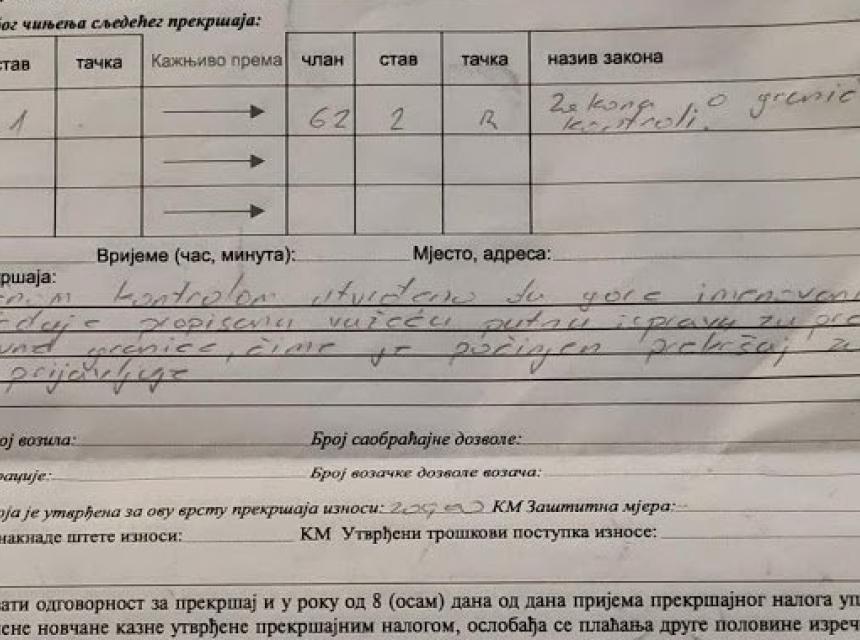 ог чињења сљедећег прекршаја:
став тачка Кажњиво према члан став тачка назив закона
1 62 2 Zakona o granič
kontroli.
Вријеме (час, минута): Мјесто, адреса:
ршаја:
kontrolom utvrđeno da gore imenovani
propisanu važeću putnu ispravu za pre
granice, čime je počinjen prekršaj za
prijavljuje
ој возила: Број саобраћајне дозволе:
рације: Број возачке дозволе возача:
оја је утврђена за ову врсту прекршаја износи: КМ Заштитна мјера:
накнаде штете износи: КМ Утврђени трошкови поступка износе:
ати одговорност за прекршај и у року од 8 (осам) дана од дана пријема прекршајног налога уп
ене новчане казне утврђене прекршајним налогом, ослобађа се плаћања друге половине изреч